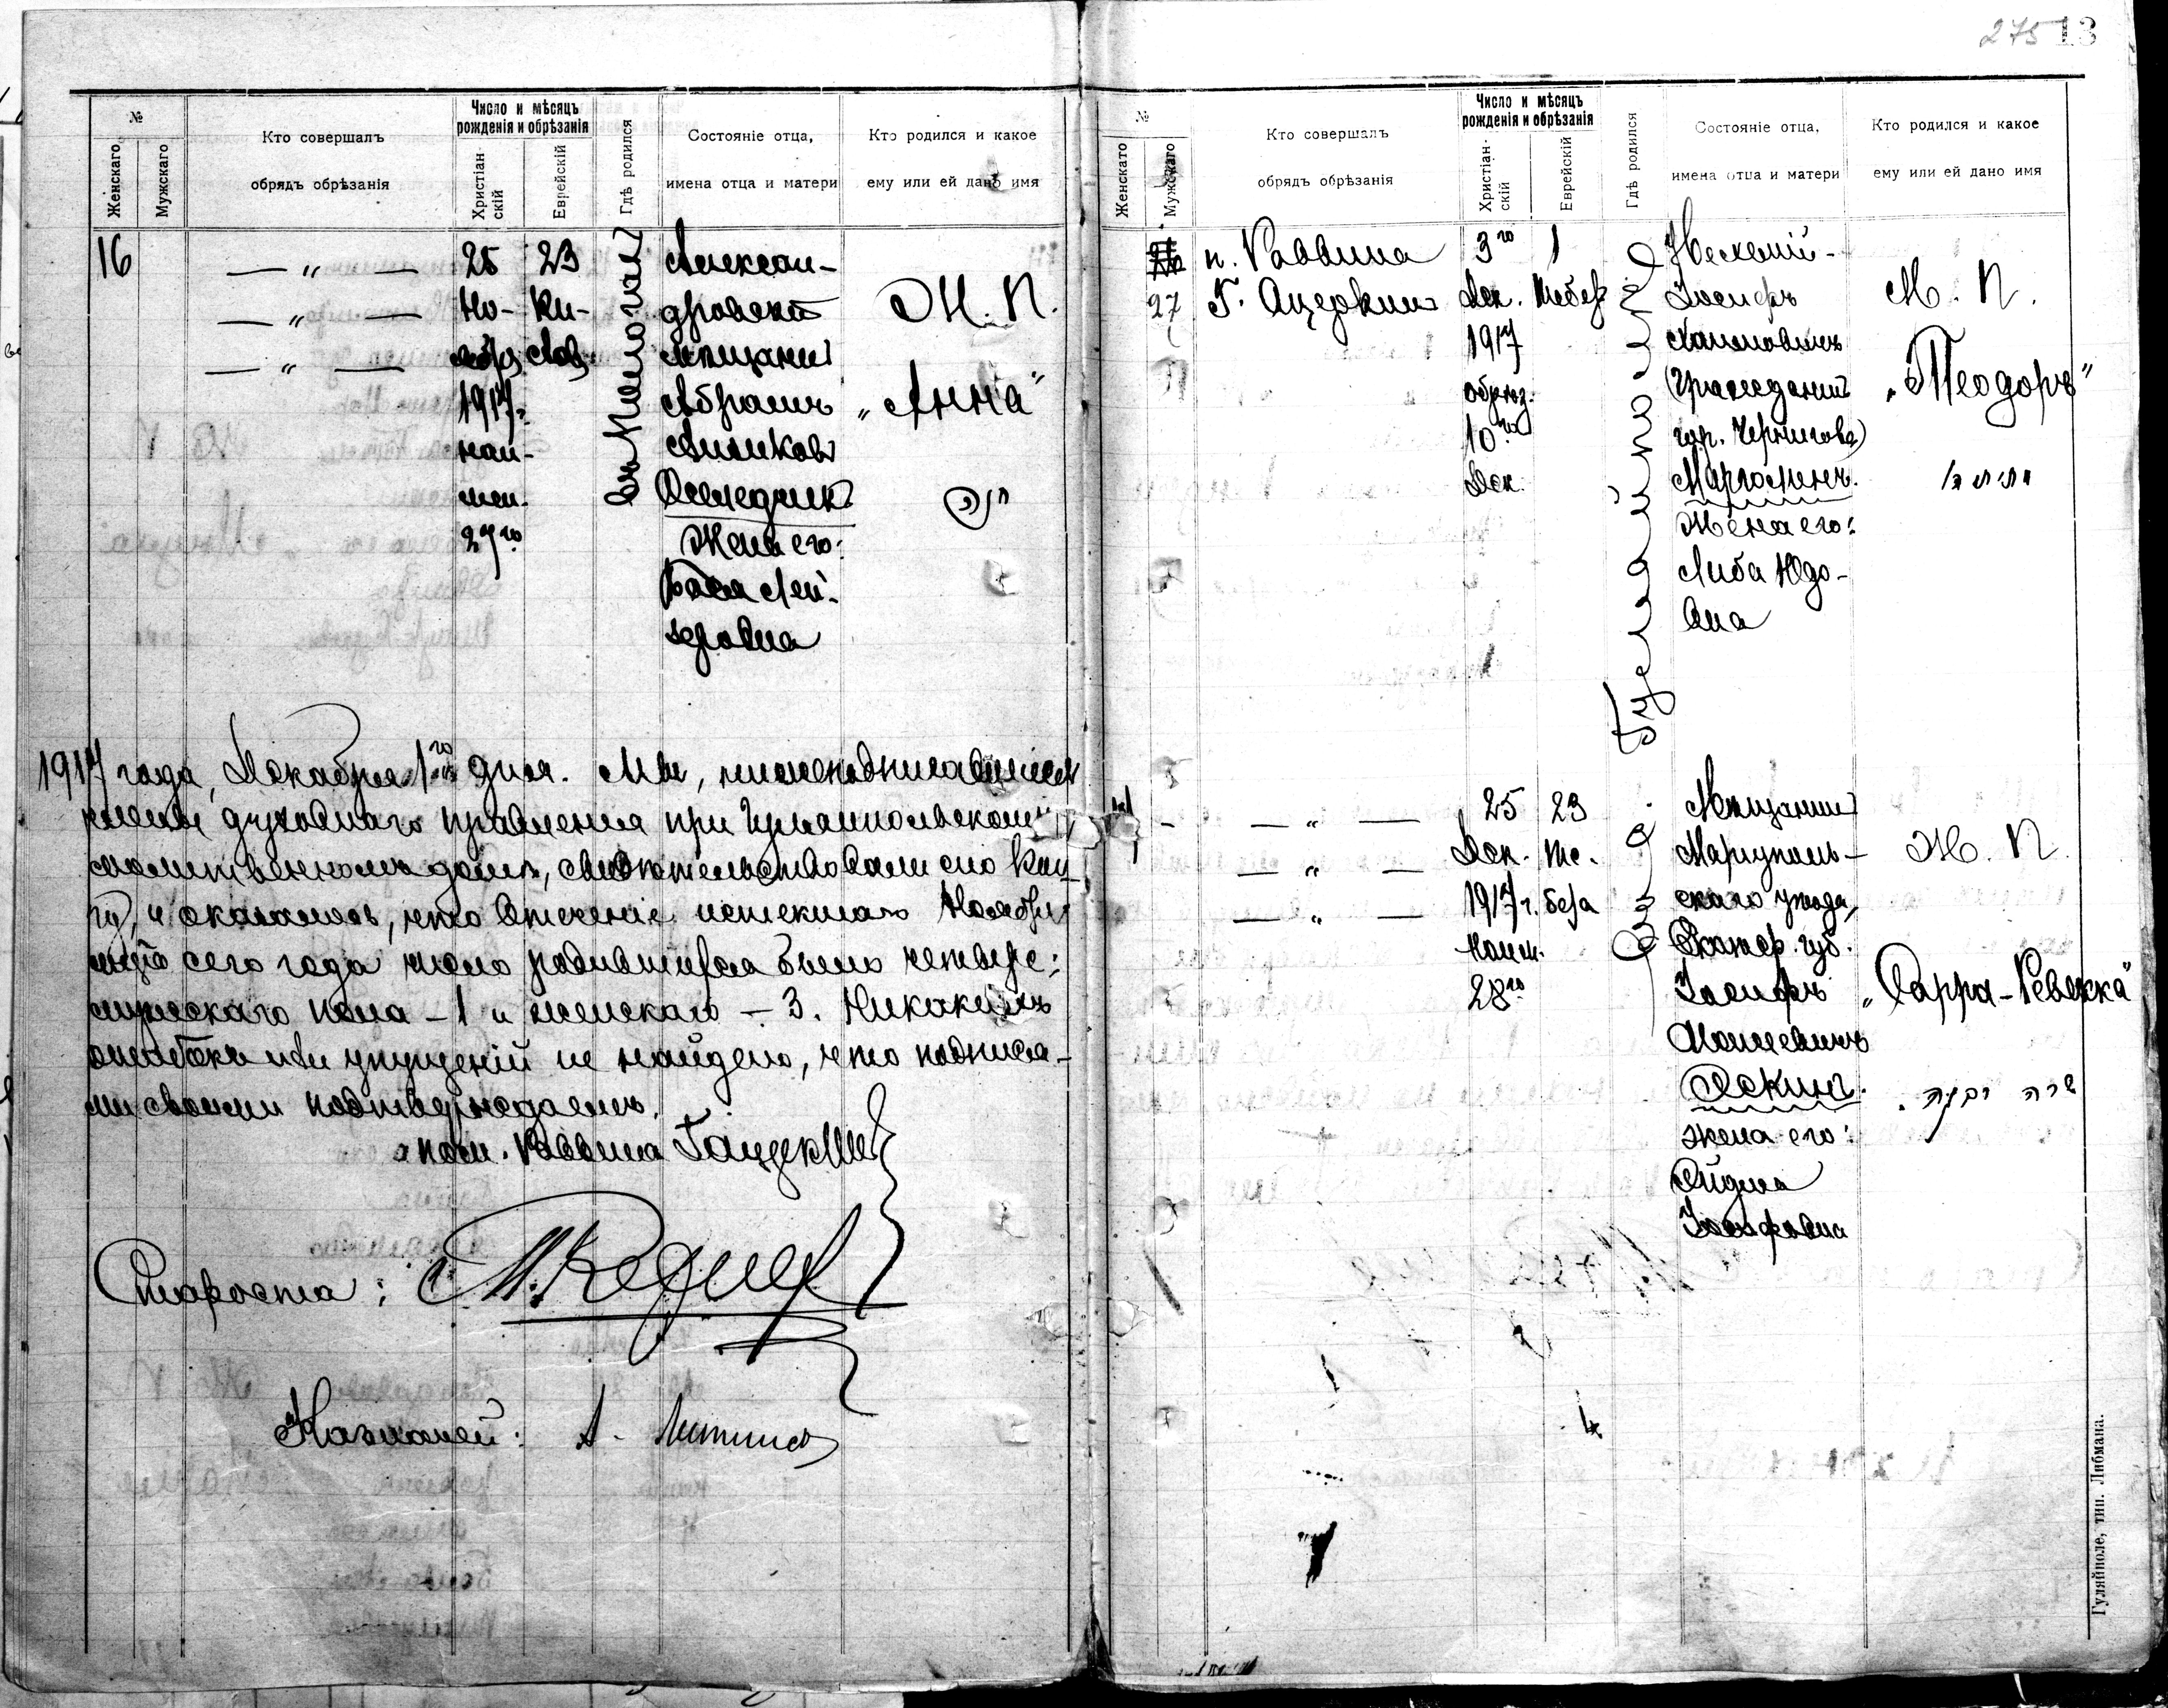 275 13
№
Женскаго
Мужскаго
Кто совершалъ
обрядъ обрѣзанія
Число и мѣсяцъ
рожденія и обрѣзанія
Христіан-
скій
Еврейскій
Гдѣ родился
Состояніе отца,
имена отца и матери
Кто родился и какое
ему или ей дано имя
16
— „ —
— „ —
— „ —
25
Но-
ября
1917г.
наи-
мен.
27го
23
Ки-
слов
Алексан-
дровскій
мѣщанинъ
Абрамъ
Жена его:
Бася Лей-
зеровна
Ж. П.
„Анна"
1917 года, Декабря 1го дня. Мы, нижеподписавшіеся
члены духовнаго правленія при Гуляйпольскомъ
молитвенномъ домѣ, свидѣтельствовали сію кни-
гу, и оказалось, что втеченіе истекшаго Ноября
мца сего года число родившихся было четверо:
мужескаго пола – 1 и женскаго – 3. Никакихъ
ошибокъ или упущеній не найдено, что подпися-
ми своими подтверждаемъ.
пом. Раввина
Староста:
Казначей: А.
№
Женскаго
Мужскаго
Кто совершалъ
обрядъ обрѣзанія
Число и мѣсяцъ
рожденія и обрѣзанія
Христіан-
скій
Еврейскій
Гдѣ родился
Состояніе отца,
имена отца и матери
Кто родился и какое
ему или ей дано имя
27
п. Раввина
Г.
3го
Дек.
1917
обрѣз.
10го
Дек.
1
Тебеф
Гуляйполѣ
Іосифъ
Хаимовичъ
(гражданинъ
гор. Чернигова)
Жена его:
Либа Юдо-
вна
М. П.
„Теодоръ"
— „ —
— „ —
— „ —
25
Дек.
1917г.
наим.
28го
23
Те-
бефа
Мѣщанинъ
Маріуполь-
скаго уѣзда,
Екатер. губ.
Іосифъ
Моисеевичъ
жена его:
Іосифовна
Ж. П.
„Сарра-Ревекка"
שרה רבקה
Гуляйполе, тип. Либмана.